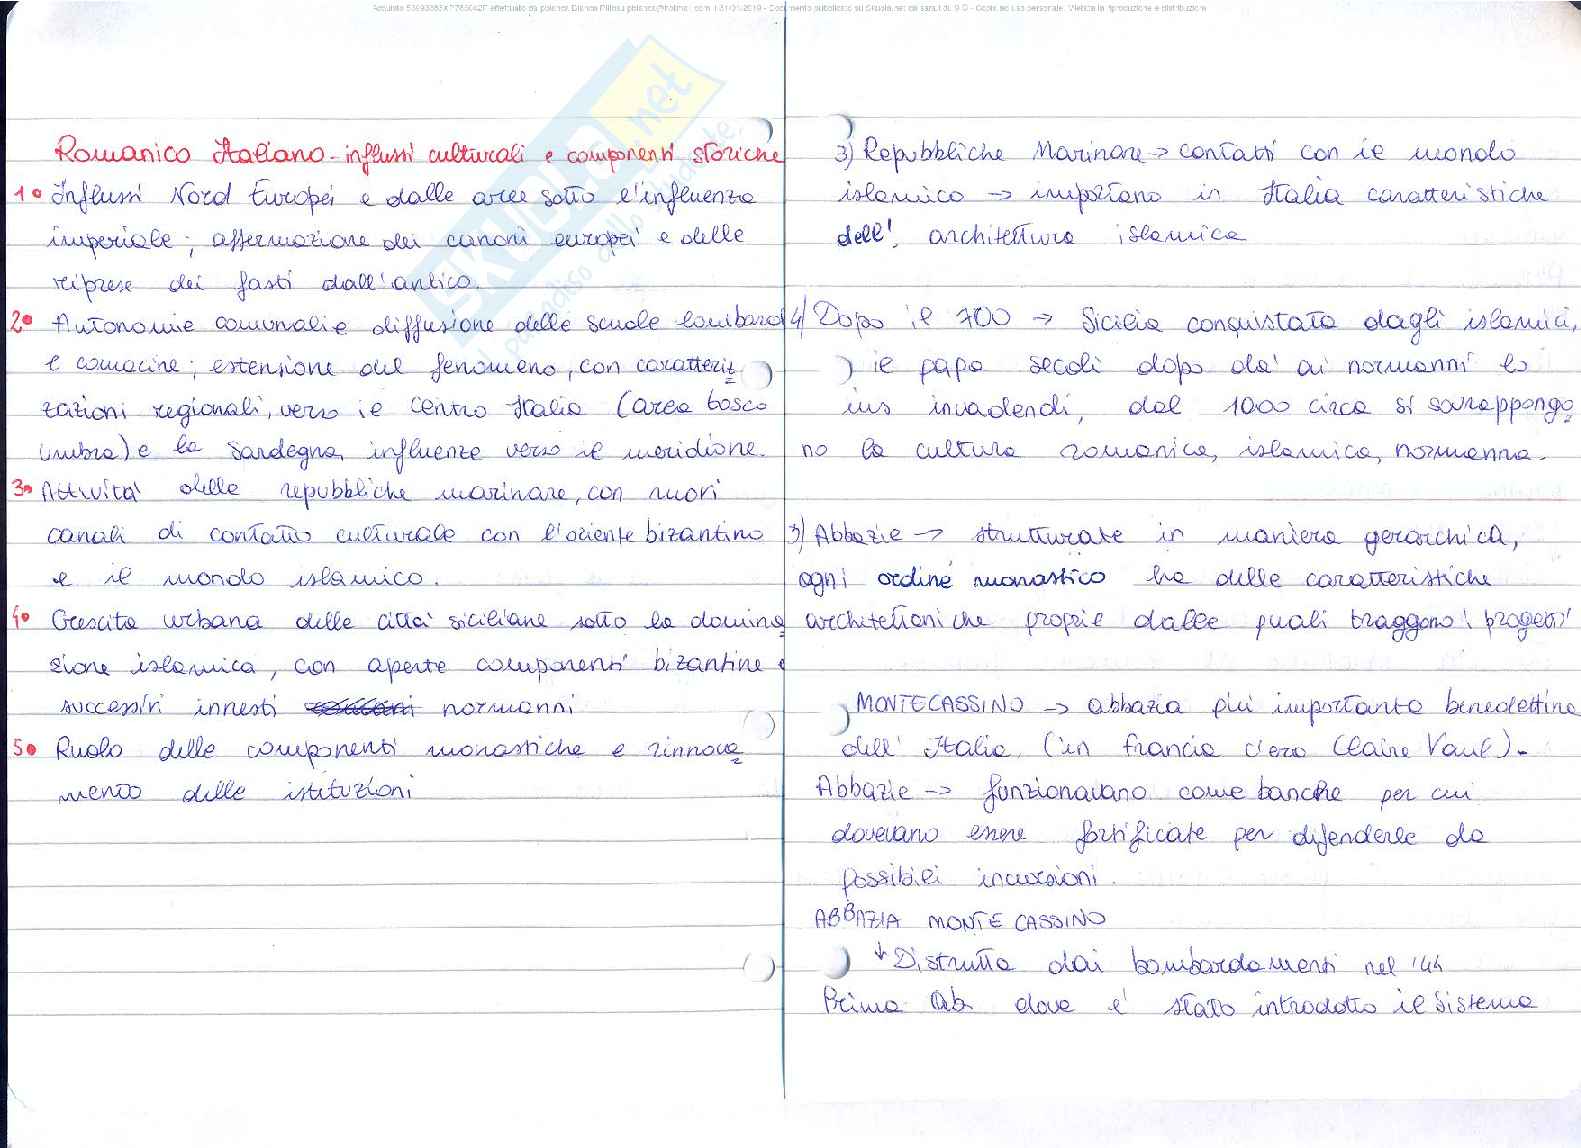 Romanico Italiano - influssi culturali e componenti storiche
1• Influssi Nord Europei e dalle aree sotto l'influenza
imperiale; affermazione dei canoni europei e delle
riprese dei fasti dall'antico.
2• Autonomie comunali e diffusione delle scuole lombard
e comacine; estensione del fenomeno, con caratteriz=
zazioni regionali, verso il centro Italia (area tosco
umbra) e la Sardegna, influenze verso il meridione.
3• Attività delle repubbliche marinare, con nuovi
canali di contatto culturale con l'oriente bizantino
e il mondo islamico.
4• Crescita urbana delle città siciliane sotto la domina
zione islamica, con aperte componenti bizantine e
successivi innesti normanni
5• Ruolo delle componenti monastiche e rinnova=
mento delle istituzioni
3) Repubbliche Marinare → contatti con il mondo
islamico → importano in Italia caratteristiche
dell' architettura islamica
4) Dopo il 700 → Sicilia conquistata dagli islamici,
il papa secoli dopo dà ai normanni lo
ius invadendi, dal 1000 circa si sovrappongo=
no la cultura romanica, islamica, normanna.
5) Abbazie → strutturate in maniera gerarchica,
ogni ordine monastico ha delle caratteristiche
architettoniche proprie dalle quali traggono i progetti
MONTECASSINO → abbazia più importante benedettina
dell' Italia (in Francia c'era Claire Vaul).
Abbazie → funzionavano come banche per cui
dovevano essere fortificate per difenderle da
possibili incursioni.
ABBAZIA MONTE CASSINO
↓ Distrutta dai bombardamenti nel '44
Prima ab. dove è stato introdotto il sistema
SKUOLA.net
il paradiso dello studente